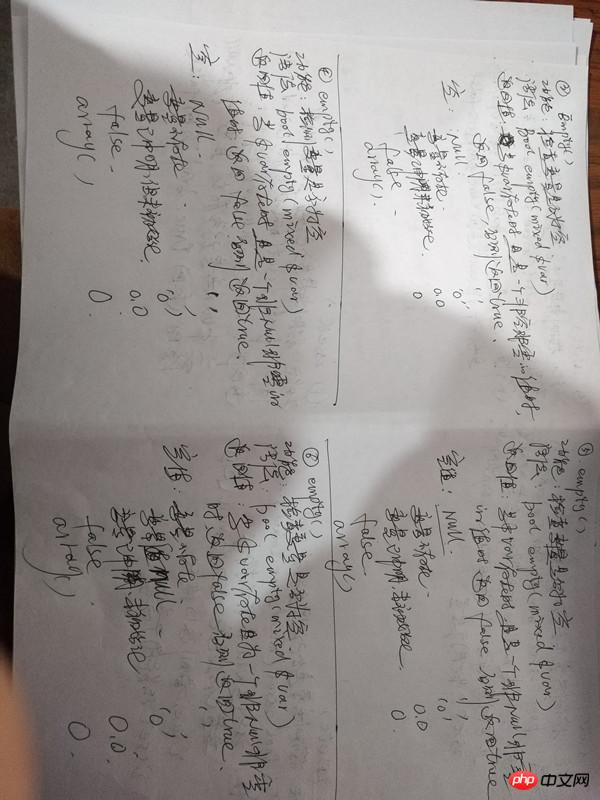 ④ empty()
功能: 检查变量是否为空
语法: bool empty(mixed $var)
返回值: 当$var存在时 且是一个非空非零的值时,
返回false, 否则返回true.
空: Null. ''
变量不存在. '0'
变量已声明但未初始化. 0.0
false 0
array().
⑤ empty()
功能: 检查变量是否为空
语法: bool empty(mixed $var)
返回值: 当$var存在时 且是一个非Null非空
的值时 返回false 否则返回true
空值: Null. ''
变量不存在. '0'
变量已声明 未初始化. 0.0
false. 0.
array()
④ empty()
功能: 检测变量是否为空
语法: bool empty(mixed $var)
返回值: 当$var存在时 且是一个非Null非零的
值时 返回false 否则返回true.
空: Null. ''
变量不存在. '0'
变量已声明但未初始化. 0.0
false. 0.
array()
⑥ empty()
功能: 检查变量是否为空.
语法: bool empty(mixed $var)
返回值: 当$var存在且为一个非Null非空
时 返回false 否则返回true.
空值: 变量不存在 ''
变量值Null. '0'
变量已声明 未初始化 0.0
false 0.
array()
php 中文网